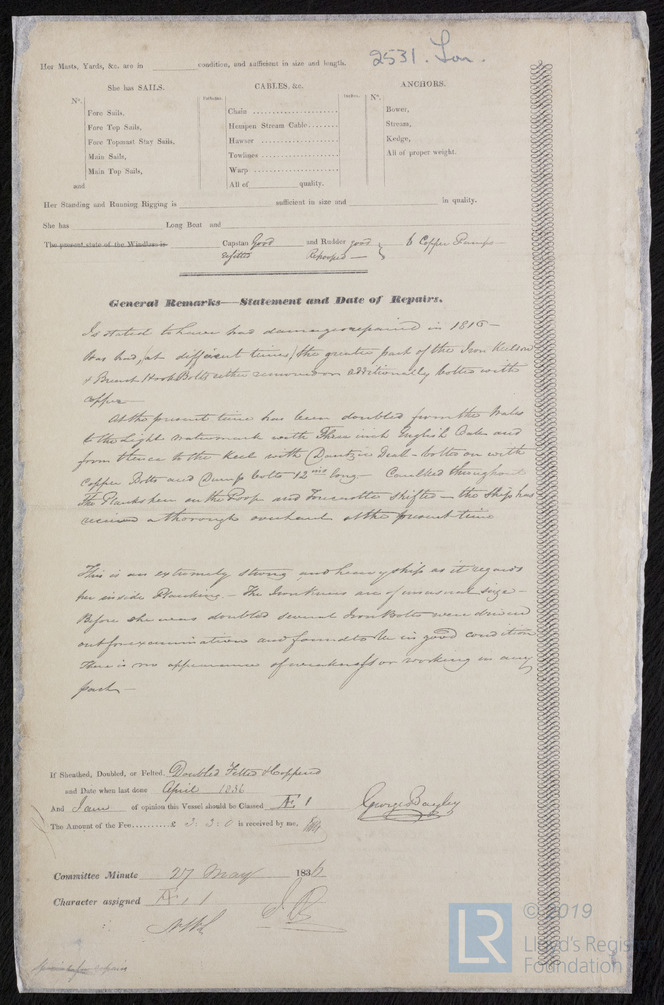 2531. Lon.
Her Masts, Yards, &c. are in condition, and sufficient in size and length.
She has SAILS. CABLES, &c. ANCHORS.
N°. Fathoms. Inches. N°.
Fore Sails, Chain Bower,
Fore Top Sails, Hempen Stream Cable Stream,
Fore Topmast Stay Sails, Hawser Kedge,
Main Sails, Towlines All of proper weight.
Main Top Sails, Warp
and All of quality.
Her Standing and Running Rigging is sufficient in size and in quality.
She has Long Boat and
The present state of the Windlass is Capstan Good and Rudder good 6 Copper Pumps
refitted
General Remarks—Statement and Date of Repairs.
Is stated to have had damages repaired in 1816—
Has had, at different times, the greater part of the Iron Keelson
& Breast Hook Bolts either removed or additionally bolted with
copper—
At the present time has been doubled from the Wales
to the Light watermark with Three inch English Oak and
from thence to the Keel with Dantzic Deal - bolted on with
Copper Bolts and Dump bolts 12 ins long— Caulked throughout
The Planksheer on the Poop and Forecastle shifted — the Ship has
received a thorough overhaul at the present time
This is an extremely strong and heavy ship as it regards
her inside Planking.— The Iron Knees are of unusual size—
Before she was doubled several Iron Bolts were drived
out for examination and found to be in good condition
There is no appearance of weakness or working in any
part—
If Sheathed, Doubled, or Felted, Doubled Felted & Coppered
and Date when last done April 1836
And I am of opinion this Vessel should be Classed Æ 1 George Bayley
The Amount of the Fee £ 3: 3: 0 is received by me,
Committee Minute 27 May 1836
Character assigned Æ 1
© 2019
LR Lloyd's Register
Foundation